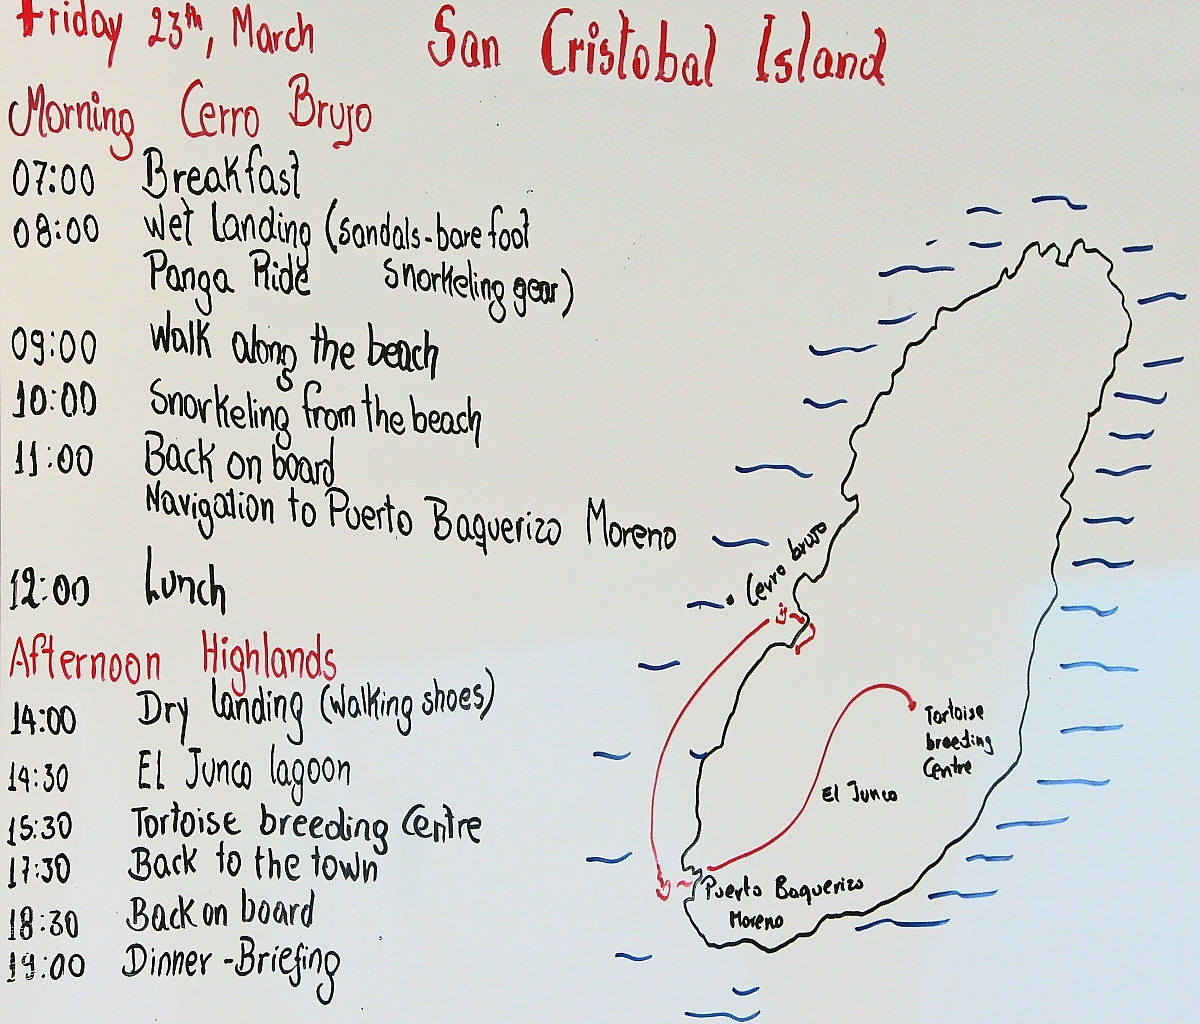 Friday 23th, March
San Cristobal Island
Morning Cerro Brujo
07:00 Breakfast
08:00 Wet Landing (sandals-bare foot
Panga Ride snorkeling gear)
09:00 Walk along the beach
10:00 Snorkeling from the beach
11:00 Back on board
Navigation to Puerto Baquerizo Moreno
12:00 Lunch
Afternoon Highlands
14:00 Dry landing (walking shoes)
14:30 El Junco lagoon
15:30 Tortoise breeding Centre
17:30 Back to the town
18:30 Back on board
19:00 Dinner - Briefing
Cerro brujo
Tortoise
breeding
Centre
El Junco
Puerto Baquerizo
Moreno